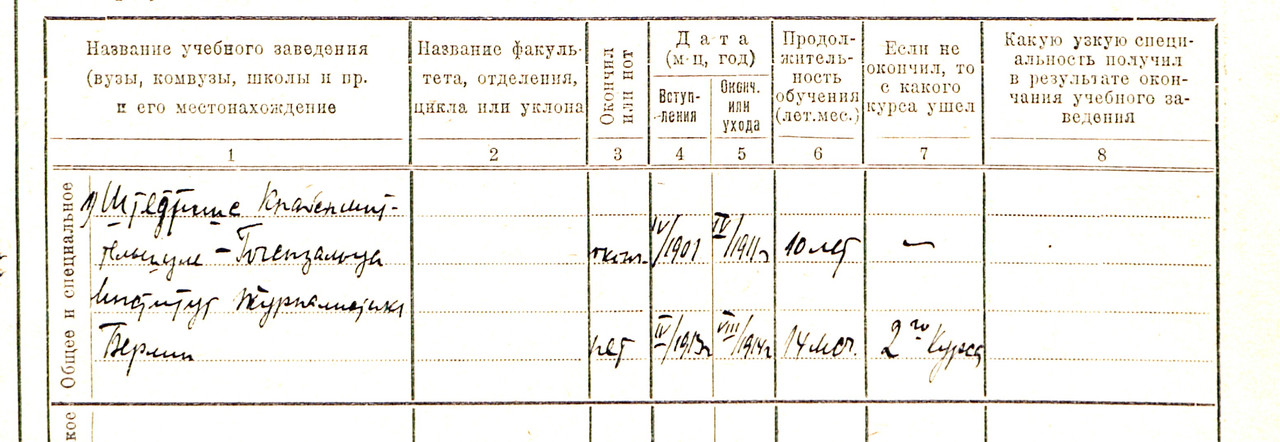 Название учебного заведения
(вузы, комвузы, школы и пр.
и его местонахождение
Название факуль-
тета, отделения,
цикла или уклона
Окончил
или нет
Дата
(м-ц, год)
Вступ-
ления
Оконч.
или
ухода
Продол-
житель-
ность
обучения
(лет.мес.)
Если не
окончил, то
с какого
курса ушел
Какую узкую специ-
альность получил
в результате окон-
чания учебного за-
ведения
1 2 3 4 5 6 7 8
Общее и специальное
1) Штедтише
оконч. IV/1901 IV/1911г 10 лет —
Институт Журналистики
Берлин нет IV/1913г VIII/1914г 14 мес. 2го курса
кое